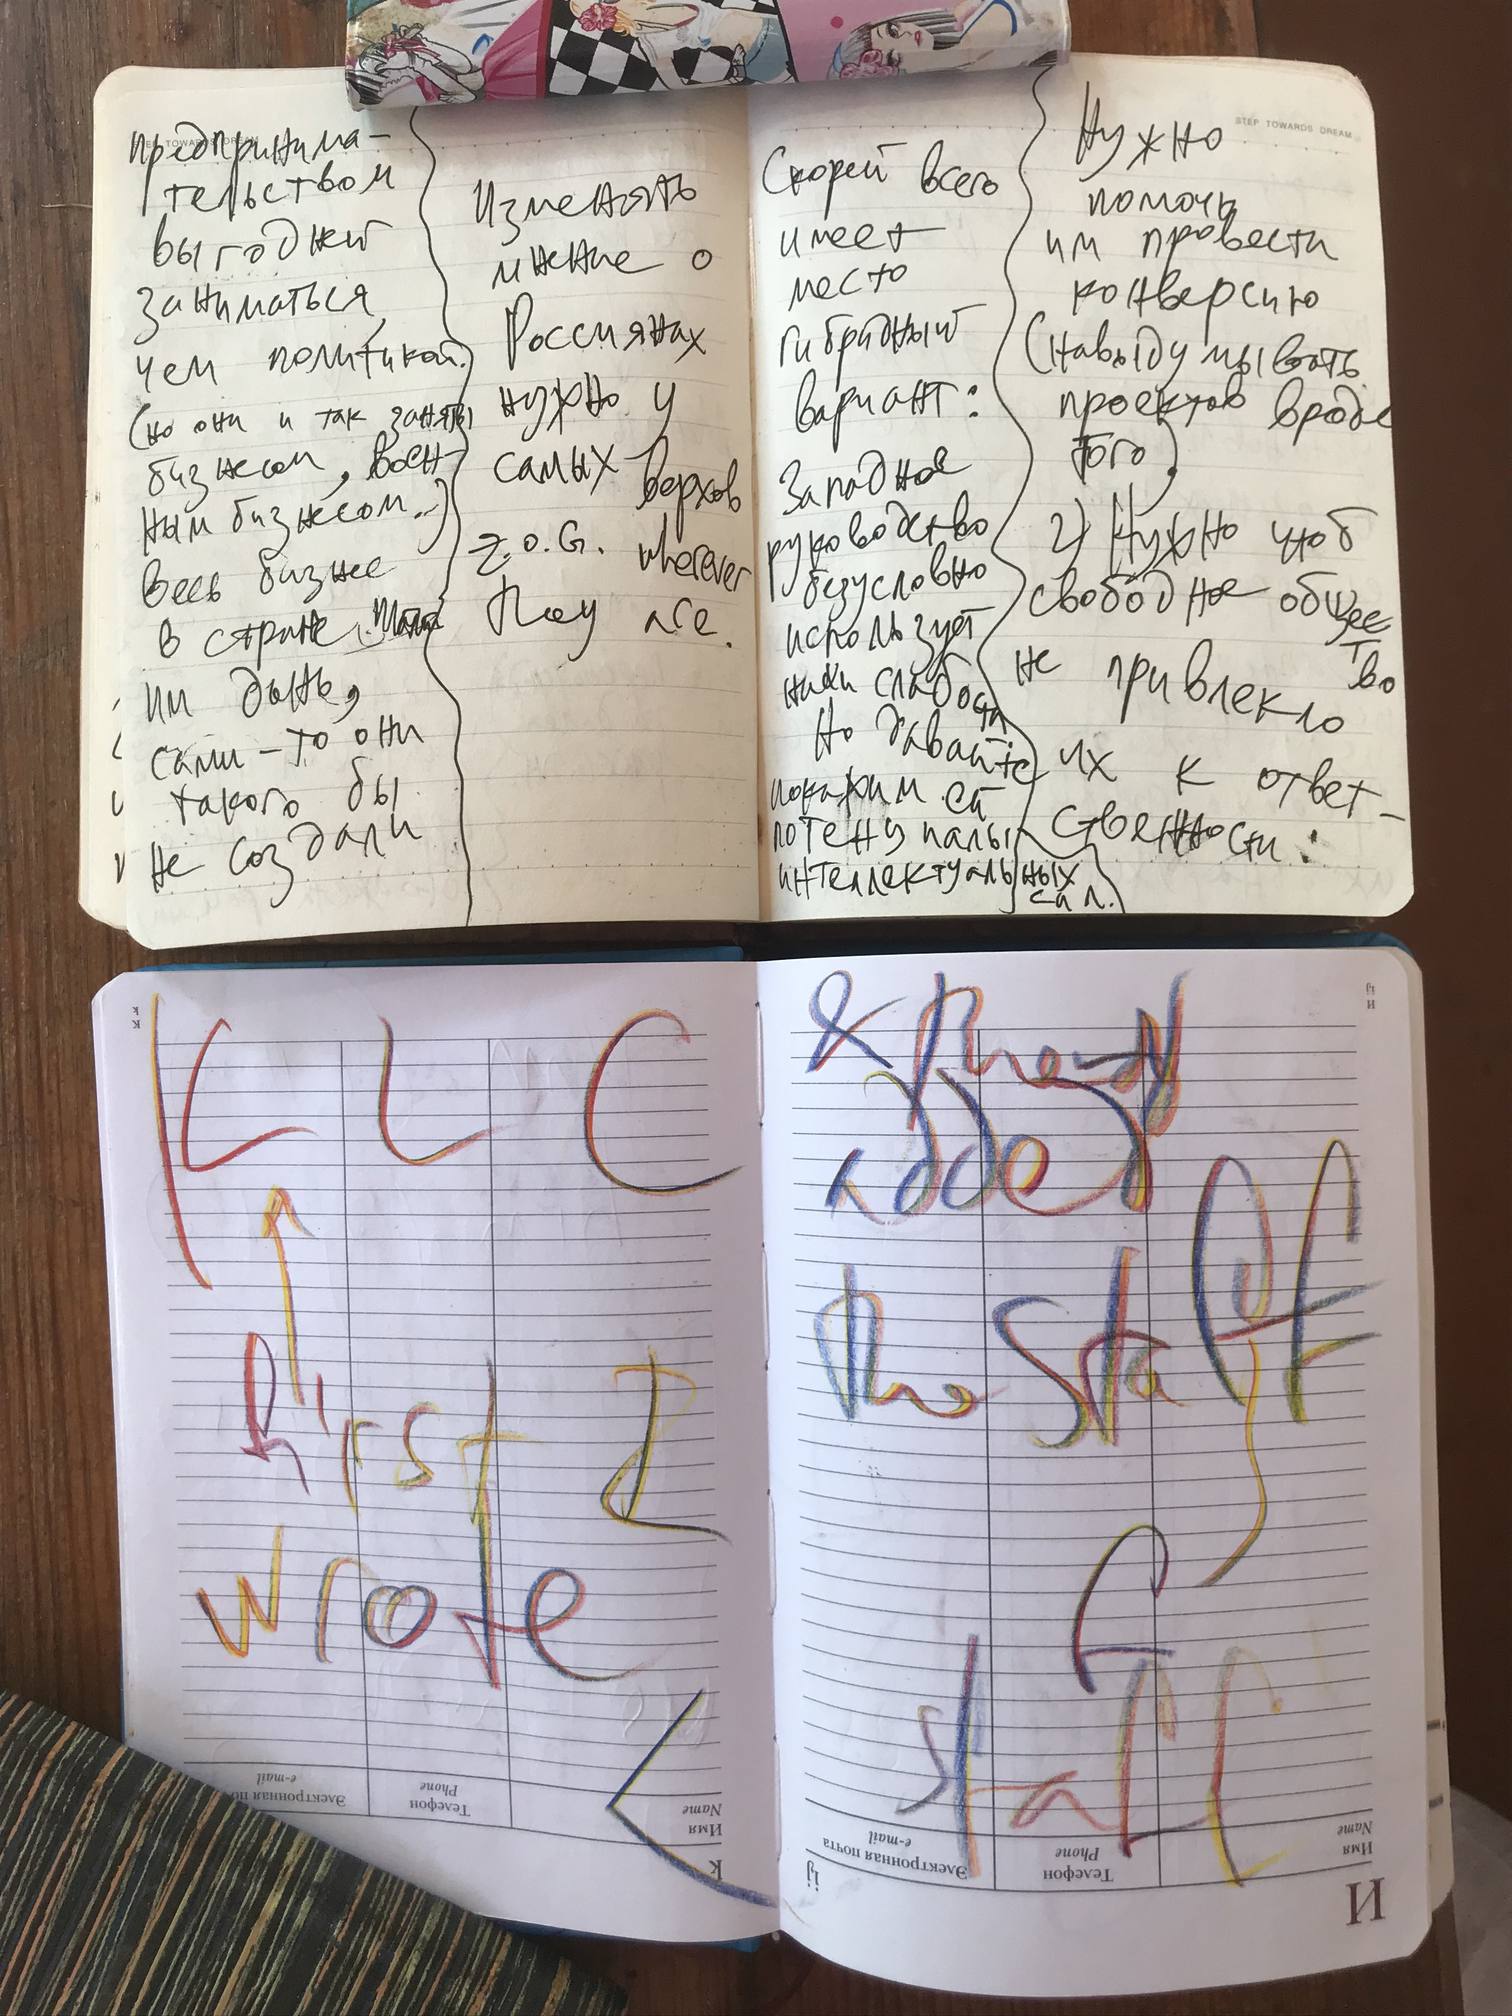 STEP TOWARDS DREAM
предпринима-
тельством
выгодней
заниматься,
чем политикой.
(но они и так заняты
бизнесом, воен-
ным бизнесом..)
Весь бизнес
в стране
им дань,
сами-то они
такого бы
не создали
Изменять
мнение о
Россиянах
нужно у
самых верхов
z.o.G. wherever
they are.
Скорей всего
имеет
место
гибридный
вариант:
Западное
руководство
безусловно
использует
наши слабости
Но давайте
покажем ей
потенциалы
интеллектуальных
сил.
STEP TOWARDS DREAM
Нужно
помочь
им провести
конверсию
(навыдумывать
проектов вроде
того)
2) Нужно чтоб
свободное общес
тво
не привлекло
их к ответ-
ственности:
K
K L C
First I
wrote
Электронная по
e-mail
Телефон
Phone
Имя
Name
K
И
ij
&
added
the staff
staff
Электронная почта
e-mail
Телефон
Phone
Имя
Name
ij
И